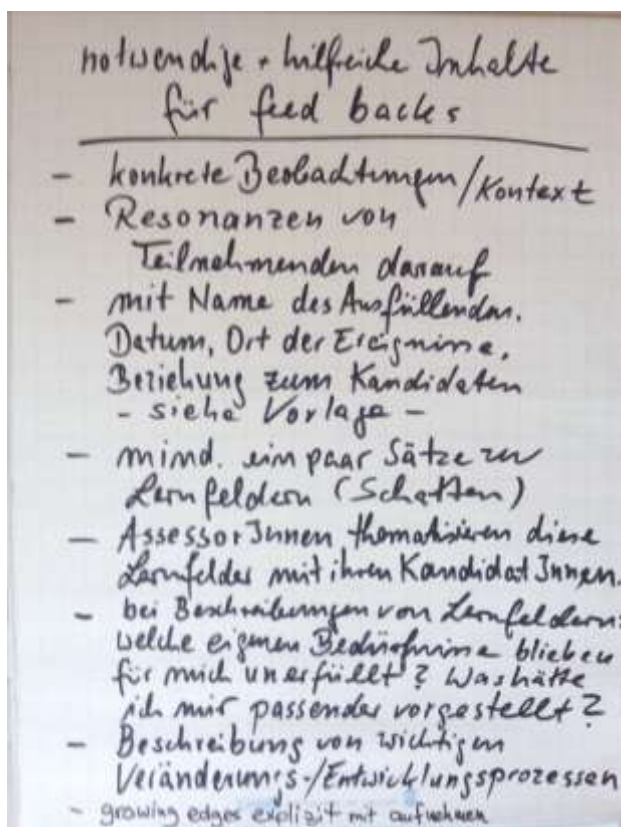 notwendige + hilfreiche Inhalte
für feed backs
- konkrete Beobachtungen/Kontext
- Resonanzen von
Teilnehmenden darauf
- mit Name des Ausfüllenden,
Datum, Ort der Ereignisse,
Beziehung zum Kandidaten
- siehe Vorlage -
- mind. ein paar Sätze zu
Lernfeldern (Schatten)
- AssessorInnen thematisieren diese
Lernfelder mit ihren KandidatInnen.
- bei Beschreibungen von Lernfeldern:
welche eigenen Bedürfnisse blieben
für mich unerfüllt? Was hätte
ich mir passender vorgestellt?
- Beschreibung von wichtigen
Veränderungs-/Entwicklungsprozessen
- growing edges explizit mit aufnehmen